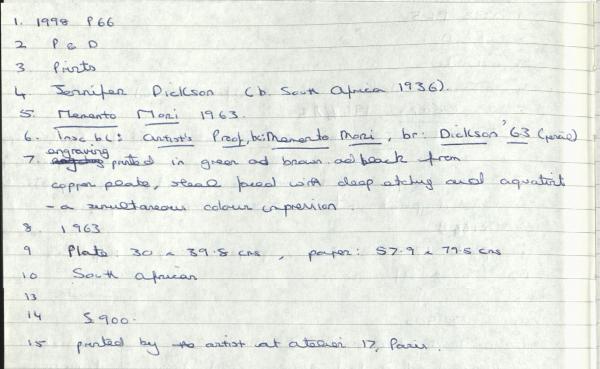 1. 1998 P66
2 P & D
3 Prints
4. Jennifer Dickson (b. South Africa 1936).
5. Memento Mori 1963.
6. Insc bl: Artist's Proof, bc: Memento Mori, br: Dickson '63 (pencil)
engraving
7. printed in green ad brown ad black from
copper plate, steel faced with deep etching and aquatint
- a simultaneous colour impression.
8. 1963
9 Plate: 30 x 39.5 cms, paper: 57.9 x 79.5 cms
10 South African
13
14 $900.
15 printed by the artist at atelier 17, Paris.